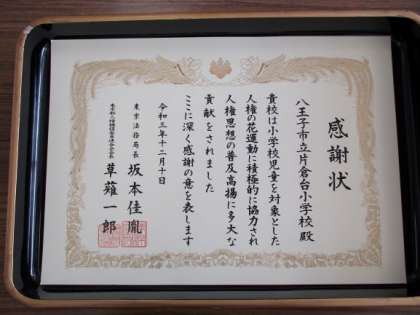 感謝状
八王子市立片倉台小学校 殿
貴校は小学校児童を対象とした
人権の花運動に積極的に協力され
人権思想の普及高揚に多大な
貢献をされました
ここに深く感謝の意を表します
令和三年十二月十日
東京法務局長 坂本佳胤
草薙一郎